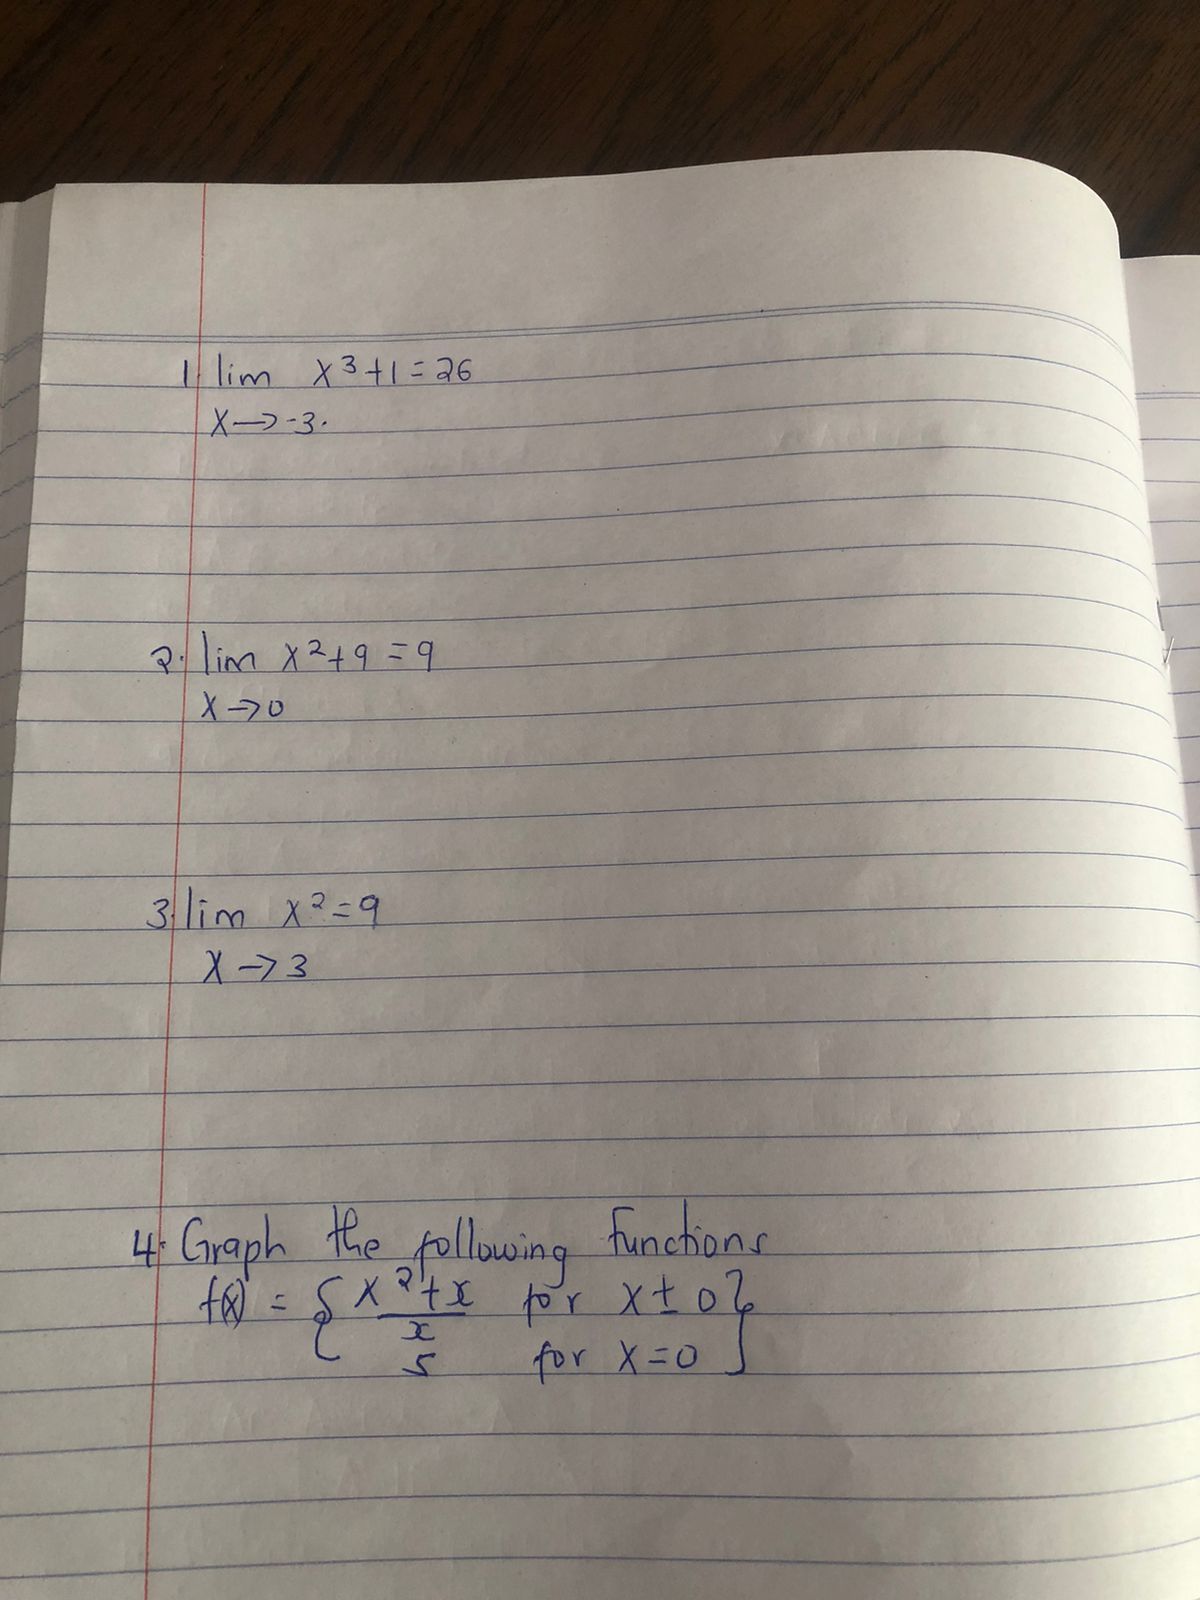 1. lim x³+1=26
x→-3.
2. lim x²+9=9
x→0
3. lim x²=9
x→3
4. Graph the following functions
f(x) = { x²+x for x ± 0 }
x
5 for x=0